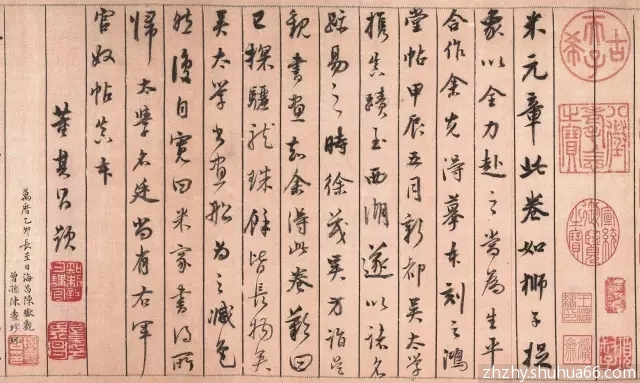 米元章此卷如狮子捉
象以全力赴之當為生平
合作余先得摹本刻之鴻
堂帖甲辰五月新都吳太學
携真蹟至西湖遂以諸名
跡易之時徐茂吳方詣吳
觀書畫知余得此卷歎曰
已探驪龍珠餘皆長物矣
吳太學書畫船為之減色
然復自寬曰米家書得所
歸太學名廷尚有右軍
官奴帖真本
董其昌題
萬曆乙卯長至日海昌陳瓛觀
曾孫陳
古希天子
八徵耄念之寶
zhzhy.shuhua66.com